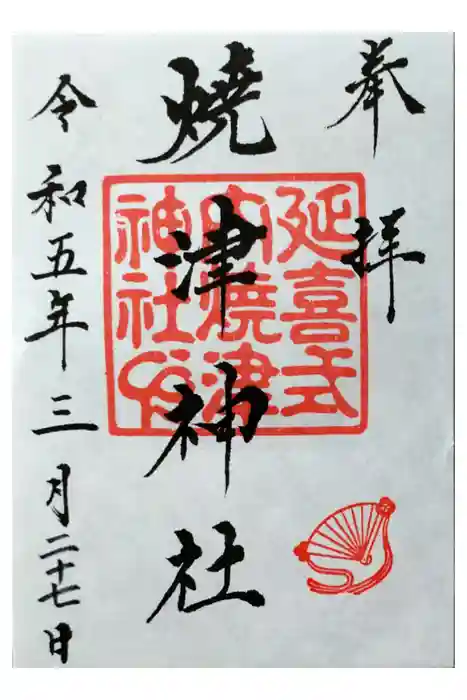 奉拝
燒津神社
延喜式
内燒津
神社印
令和五年三月二十七日